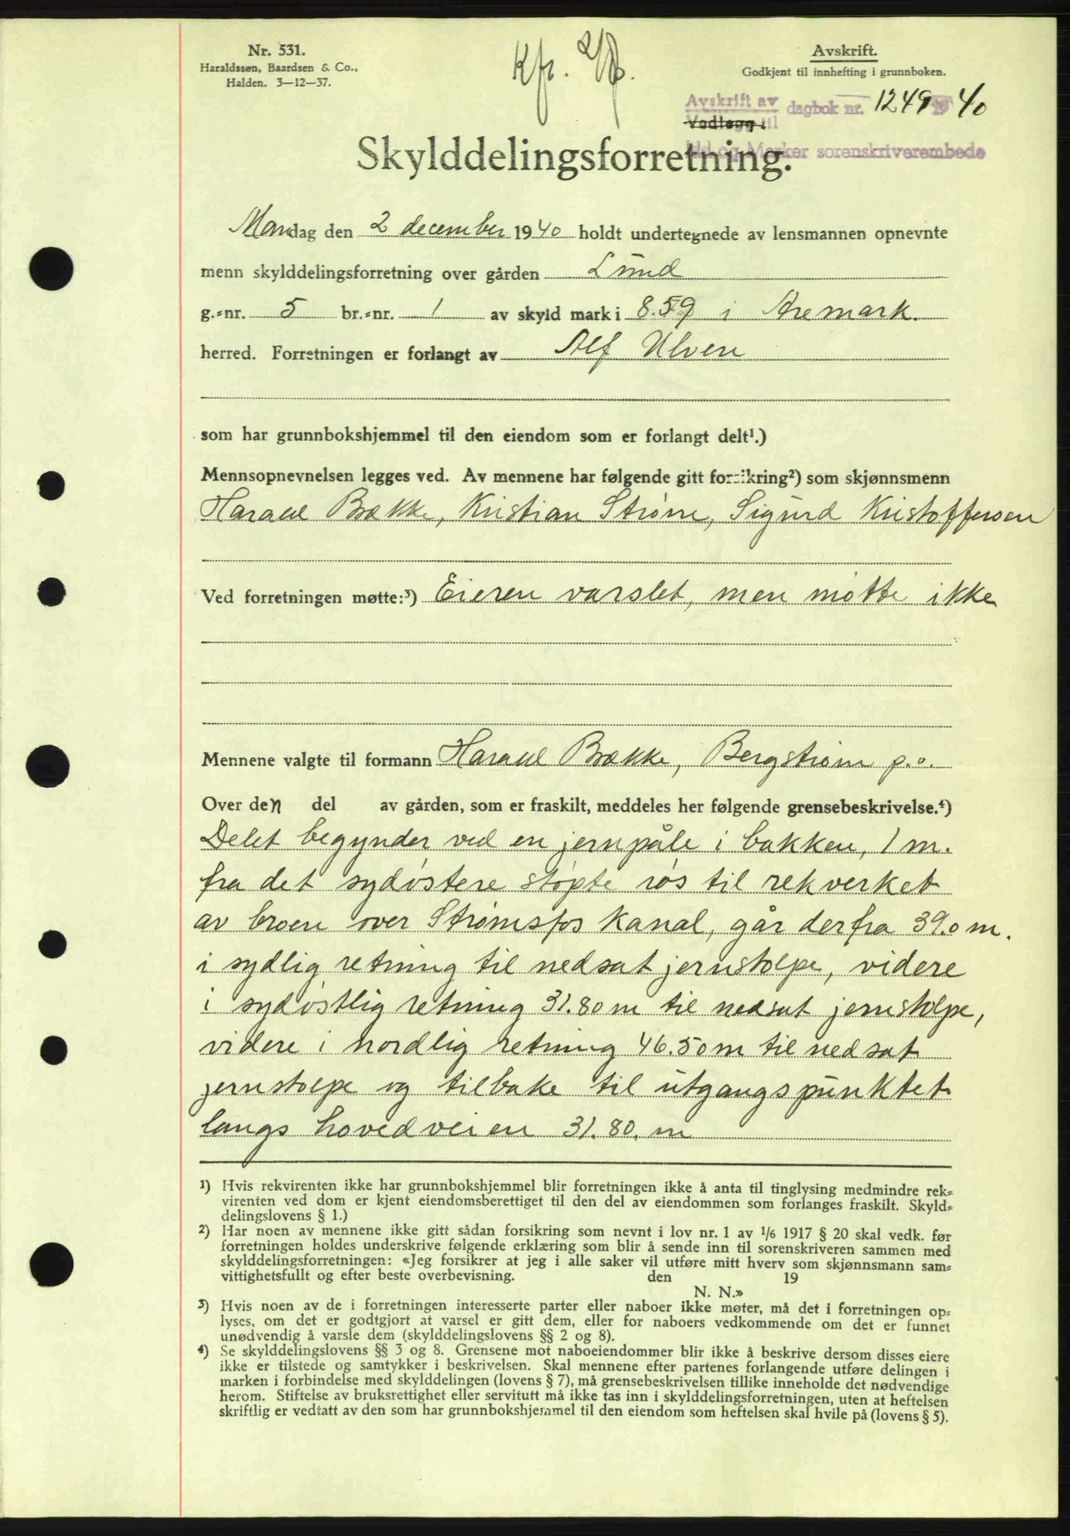 Nr. 531.
Haraldssøn, Baardsen & Co.,
Halden. 3—12—37.
Kfr.
Avskrift.
Godkjent til innhefting i grunnboken.
Avskrift av dagbok nr. 1249 1940
Vedlegg til
Idd og Marker sorenskriverembede
Skylddelingsforretning.
Mandag den 2 december 1940 holdt undertegnede av lensmannen opnevnte
menn skylddelingsforretning over gården Lund
g.-nr. 5 br.-nr. 1 av skyld mark i 8.59 i Aremark.
herred. Forretningen er forlangt av Alf Ulven
som har grunnbokshjemmel til den eiendom som er forlangt delt¹.)
Mennsopnevnelsen legges ved. Av mennene har følgende gitt forsikring²) som skjønnsmenn
Harald Bække, Kristian Strøm, Sigurd Kristoffersen
Ved forretningen møtte:³) Eieren varslet, men møtte ikke
Mennene valgte til formann Harald Bække, Bergstrøm p.o.
Over den del av gården, som er fraskilt, meddeles her følgende grensebeskrivelse.⁴)
Delet begynder ved en jernpåle i bakken, 1 m.
fra det sydøstere støpte røs til rekverket
av broen over Strømsfos kanal, går derfra 39.0 m.
i sydlig retning til nedsat jernstolpe, videre
i sydøstlig retning 31.80 m til nedsat jernstolpe,
videre i nordlig retning 46.50 m til nedsat
jernstolpe og tilbake til utgangspunktet
langs hovedveien 31.80. m
¹) Hvis rekvirenten ikke har grunnbokshjemmel blir forretningen ikke å anta til tinglysing medmindre rek-
virenten ved dom er kjent eiendomsberettiget til den del av eiendommen som forlanges fraskilt. Skyld-
delingslovens § 1.)
²) Har noen av mennene ikke gitt sådan forsikring som nevnt i lov nr. 1 av 1/6 1917 § 20 skal vedk. før
forretningen holdes underskrive følgende erklæring som blir å sende inn til sorenskriveren sammen med
skylddelingsforretningen: «Jeg forsikrer at jeg i alle saker vil utføre mitt hverv som skjønnsmann sam-
vittighetsfullt og efter beste overbevisning. den 19
N. N.»
³) Hvis noen av de i forretningen interesserte parter eller naboer ikke møter, må det i forretningen op-
lyses, om det er godtgjort at varsel er gitt dem, eller for naboers vedkommende om det er funnet
unødvendig å varsle dem (skylddelingslovens §§ 2 og 8).
⁴) Se skylddelingslovens §§ 3 og 8. Grensene mot naboeiendommer blir ikke å beskrive dersom disses eiere
ikke er tilstede og samtykker i beskrivelsen. Skal mennene efter partenes forlangende utføre delingen i
marken i forbindelse med skylddelingen (lovens § 7), må grensebeskrivelsen tillike inneholde det nødvendige
herom. Stiftelse av bruksrettighet eller servitutt må ikke tas inn i skylddelingsforretningen, uten at heftelsen
skriftlig er vedtatt av den som har grunnbokshjemmel til den eiendom som heftelsen skal hvile på (lovens § 5).